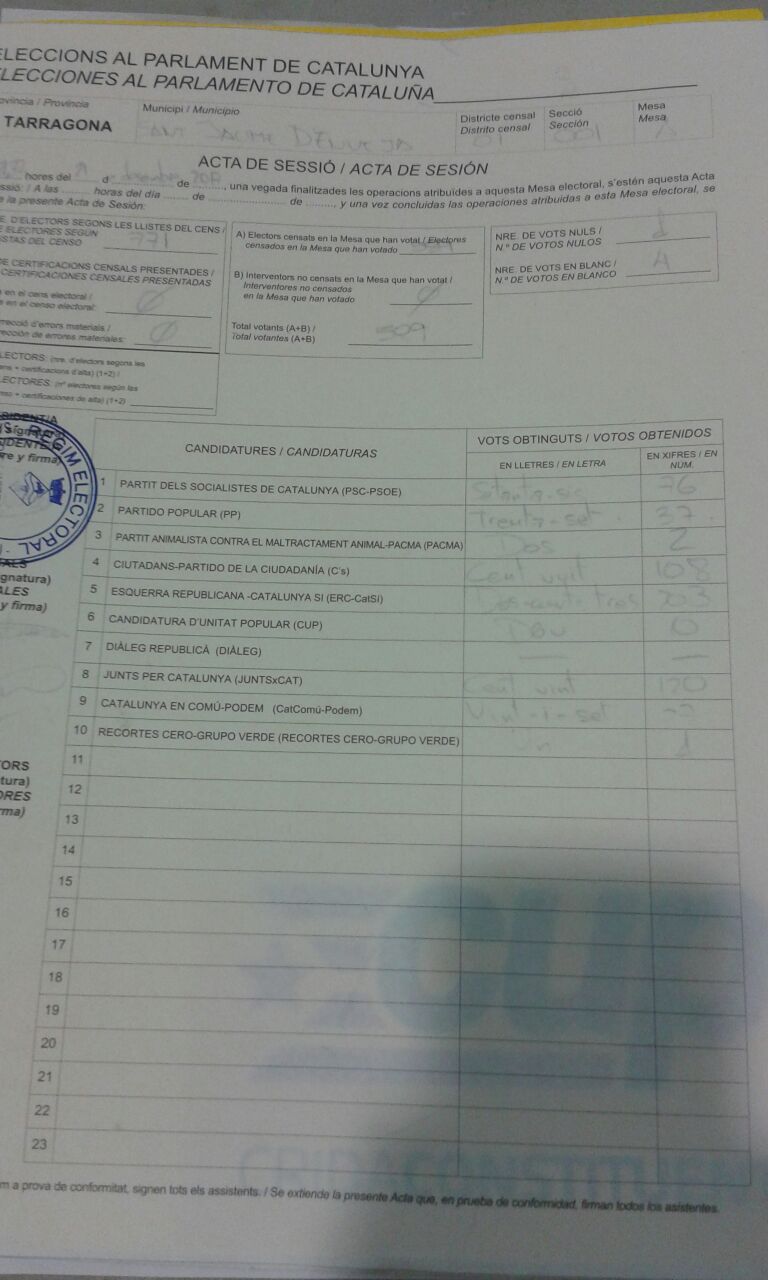 ELECCIONS AL PARLAMENT DE CATALUNYA
ELECCIONES AL PARLAMENTO DE CATALUÑA
ovíncia / Provincia
Municipi / Municipio
Districte censal
Distrito censal
Secció
Sección
Mesa
Mesa
TARRAGONA
SANT JAUME D'ENVEJA
01 001 A
ACTA DE SESSIÓ / ACTA DE SESIÓN
hores del d de ........., una vegada finalitzades les operacions atribuïdes a aquesta Mesa electoral, s'estén aquesta Acta
ssió: / A las ......... horas del día ......... de ......... de ........., y una vez concluidas las operaciones atribuidas a esta Mesa electoral, se
e la presente Acta de Sesión:
E. D'ELECTORS SEGONS LES LLISTES DEL CENS /
E ELECTORES SEGÚN
STAS DEL CENSO 771
DE CERTIFICACIONS CENSALS PRESENTADES /
CERTIFICACIONES CENSALES PRESENTADAS
s en el cens electoral /
s en el censo electoral: Ø
rrecció d'errors materials /
rección de errores materiales: Ø
LECTORS: (nre. d'electors segons les
ens + certificacions d'alta) (1+2) /
LECTORES: (nº electores según las
nso + certificaciones de alta) (1+2)
A) Electors censats en la Mesa que han votat / Electores
censados en la Mesa que han votado
B) Interventors no censats en la Mesa que han votat /
Interventores no censados
en la Mesa que han votado Ø
Total votants (A+B) /
Total votantes (A+B) 509
NRE. DE VOTS NULS /
N.º DE VOTOS NULOS 1
NRE. DE VOTS EN BLANC /
N.º DE VOTOS EN BLANCO 4
RÈGIM ELECTORAL
SIDENT/A
(signatura)
IDENTE/A
re y firma)
ALS
gnatura)
ALES
y firma)
ORS
tura)
ORES
rma)
CANDIDATURES / CANDIDATURAS
VOTS OBTINGUTS / VOTOS OBTENIDOS
EN LLETRES / EN LETRA
EN XIFRES / EN NUM.
1 PARTIT DELS SOCIALISTES DE CATALUNYA (PSC-PSOE) Setanta-sis 76
2 PARTIDO POPULAR (PP) Trenta-set 37
3 PARTIT ANIMALISTA CONTRA EL MALTRACTAMENT ANIMAL-PACMA (PACMA) Dos 2
4 CIUTADANS-PARTIDO DE LA CIUDADANÍA (C's) Cent vuit 108
5 ESQUERRA REPUBLICANA -CATALUNYA SI (ERC-CatSI) Dos-cents tres 203
6 CANDIDATURA D'UNITAT POPULAR (CUP) 0
7 DIÀLEG REPUBLICÀ (DIÀLEG) — —
8 JUNTS PER CATALUNYA (JUNTSxCAT) Cent vint 120
9 CATALUNYA EN COMÚ-PODEM (CatComú-Podem) Vint-i-set
10 RECORTES CERO-GRUPO VERDE (RECORTES CERO-GRUPO VERDE) Un 1
11
12
13
14
15
16
17
18
19
20
21
22
23
CUP
CRIDA CONSTITUENT
m a prova de conformitat, signen tots els assistents. / Se extiende la presente Acta que, en prueba de conformidad, firman todos los asistentes.